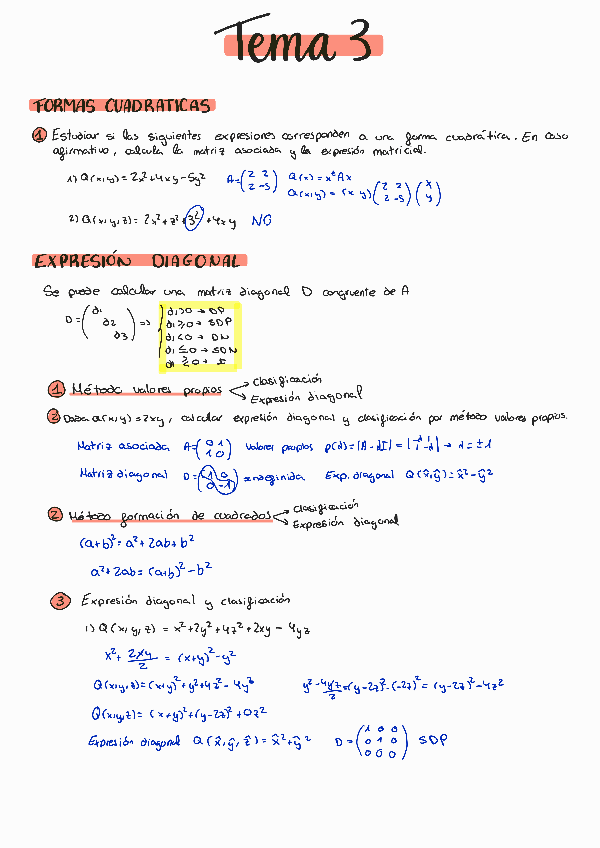 Tema 3
FORMAS CUADRATICAS
1 Estudiar si las siguientes expresiones corresponden a una forma cuadrática. En caso
afirmativo, calcula la matriz asociada y la expresión matricial.
1) Q(x,y) = 2x²+4xy-5y² A=(2 2 Q(x) = xᵗAx
2 -5) Q(x,y) = (x y)(2 2 (x
2 -5) y)
2) Q(x,y,z) = 2x²+z²+3²+4xy NO
EXPRESIÓN DIAGONAL
Se puede calcular una matriz diagonal D congruente de A
D=(d1 d2 d3) =>
di>0 → DP
di≥0 → SDP
di<0 → DN
di≤0 → SDN
di ≷0 → I
1 Método valores propios → Clasificación
→ Expresión diagonal
2 Dada Q(x,y)=2xy, calcular expresión diagonal y clasificación por método valores propios.
Matriz asociada A=(0 1 Valores propios p(λ)=|A-λI|=|-λ 1 → λ=±1
1 0) 1 -λ|
Matriz diagonal D=(1 0 => Indefinida Exp. diagonal Q(x̂,ŷ)=x̂²-ŷ²
0 -1)
2 Método formación de cuadrados → Clasificación
→ Expresión diagonal
(a+b)²=a²+2ab+b²
a²+2ab=(a+b)²-b²
3 Expresión diagonal y clasificación
1) Q(x,y,z) = x²+2y²+4z²+2xy-4yz
x²+ 2xy/2 = (x+y)²-y²
Q(x,y,z)=(x+y)²+y²+4z²-4yz y²-4yz/2=(y-2z)²-(-2z)²=(y-2z)²-4z²
Q(x,y,z)=(x+y)²+(y-2z)²+0z²
Expresión diagonal Q(x̂,ŷ,ẑ)=x̂²+ŷ² D=(1 0 0 SDP
0 1 0
0 0 0)